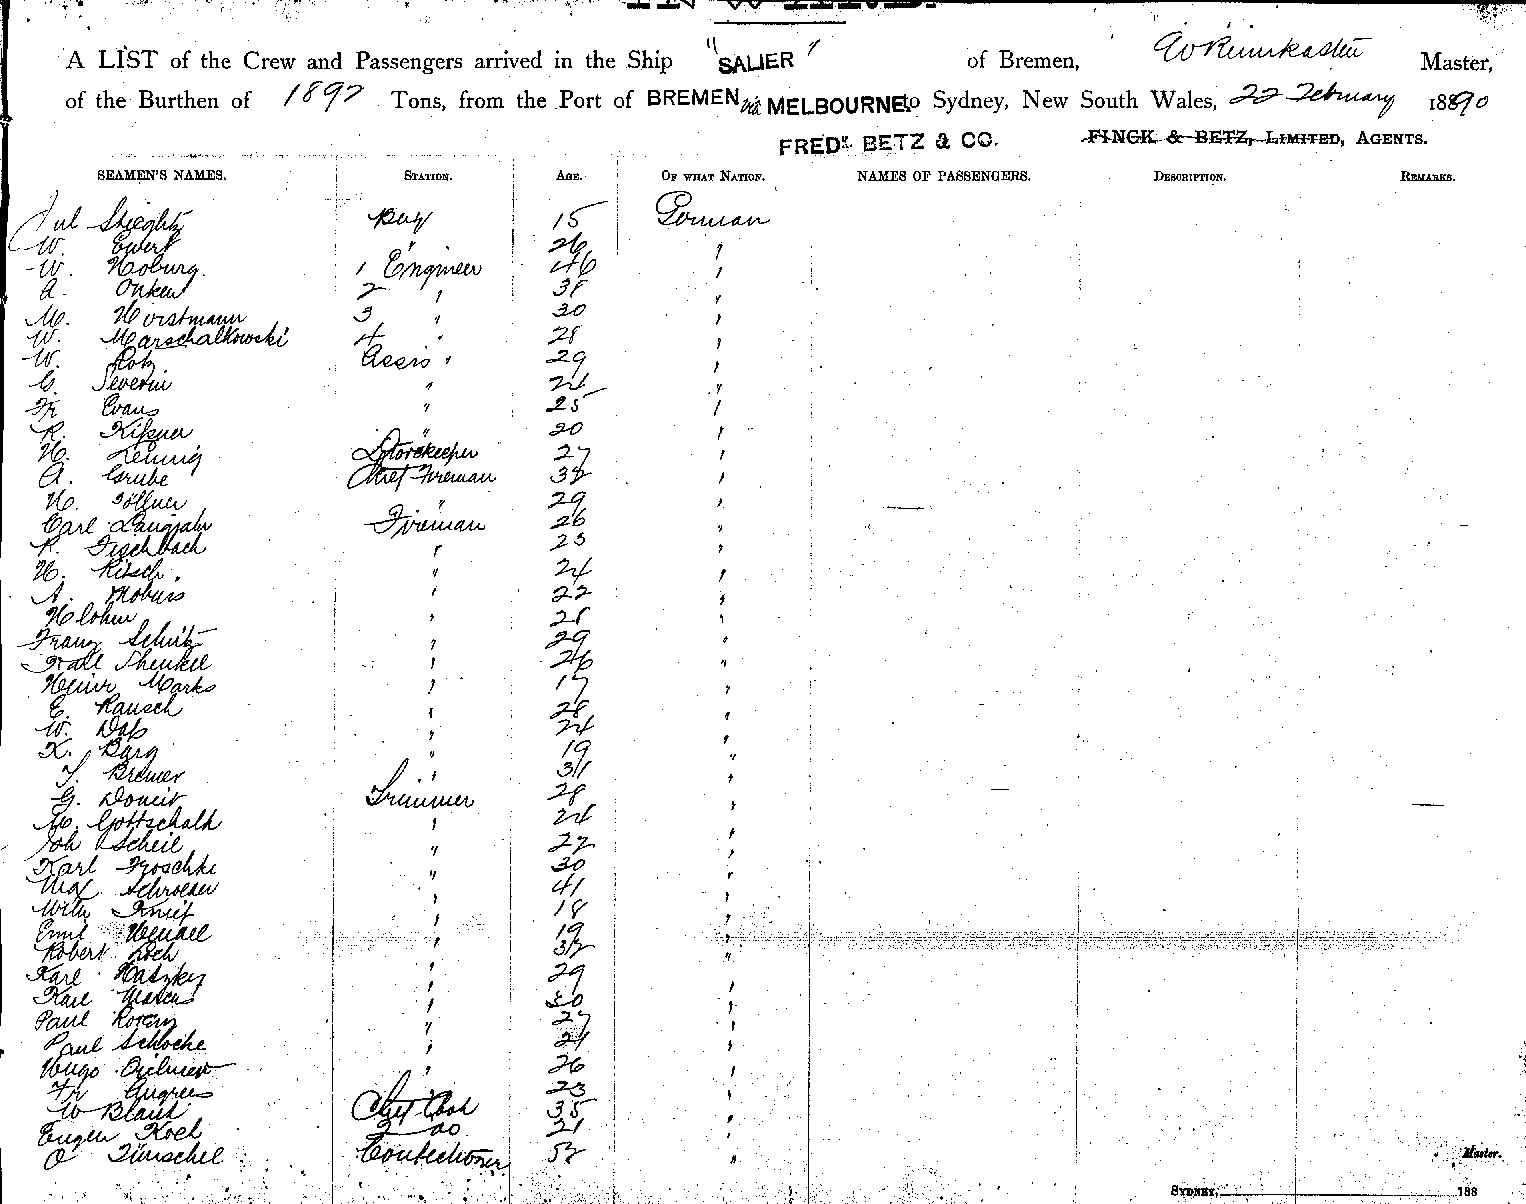 A LIST of the Crew and Passengers arrived in the Ship "SALIER" of Bremen, Master,
of the Burthen of 1897 Tons, from the Port of BREMEN via MELBOURNE to Sydney, New South Wales, 22 February 1890
FREDK BETZ & CO. FINCK & BETZ, LIMITED, AGENTS.
SEAMEN'S NAMES. STATION. AGE. OF WHAT NATION. NAMES OF PASSENGERS. DESCRIPTION. REMARKS.
Jul Stieglitz Boy 15 German
W. Ewert " 26 "
W. Hoburg 1 Engineer 46 "
A. Onken 2 " 38 "
M. Horstmann 3 " 30 "
W. Marschalkowski 4 " 28 "
W. Assis " 29 "
G. Severin " 24 "
Fr Evans " 25 "
R. Kißner " 20 "
H. Hennig Storekeeper 27 "
A. Grube Chief Fireman 38 "
H. Söllner " 29 "
Carl Langjahr Fireman 26 "
R. Fischbach " 23 "
H. Kitsch " 24 "
A. Mobuss " 22 "
H " 28 "
Franz Schütz " 29 "
Karl Shenkel " 26 "
Heinr Marks " 17 "
E. Rausch " 28 "
W. Daß " 24 "
K. Barg " 19 "
J. Bremer " 31 "
G. Trimmer 28 "
M. Gottschalk " 24 "
Joh Scheil " 22 "
Karl Froschke " 30 "
Max Schroeder " 41 "
Willy Knief " 18 "
Emil Wenzel " 19 "
Robert Koch " 32 "
Karl " 29 "
Karl " 30 "
Paul " 27 "
Paul Schocke " 21 "
Hugo " 26 "
Fr Angrees " 23 "
W Blank Chief Cook 35 "
Eugen Koch 2 do 21 "
O Türschel Confectioner 52 "
Master.
SYDNEY, 188